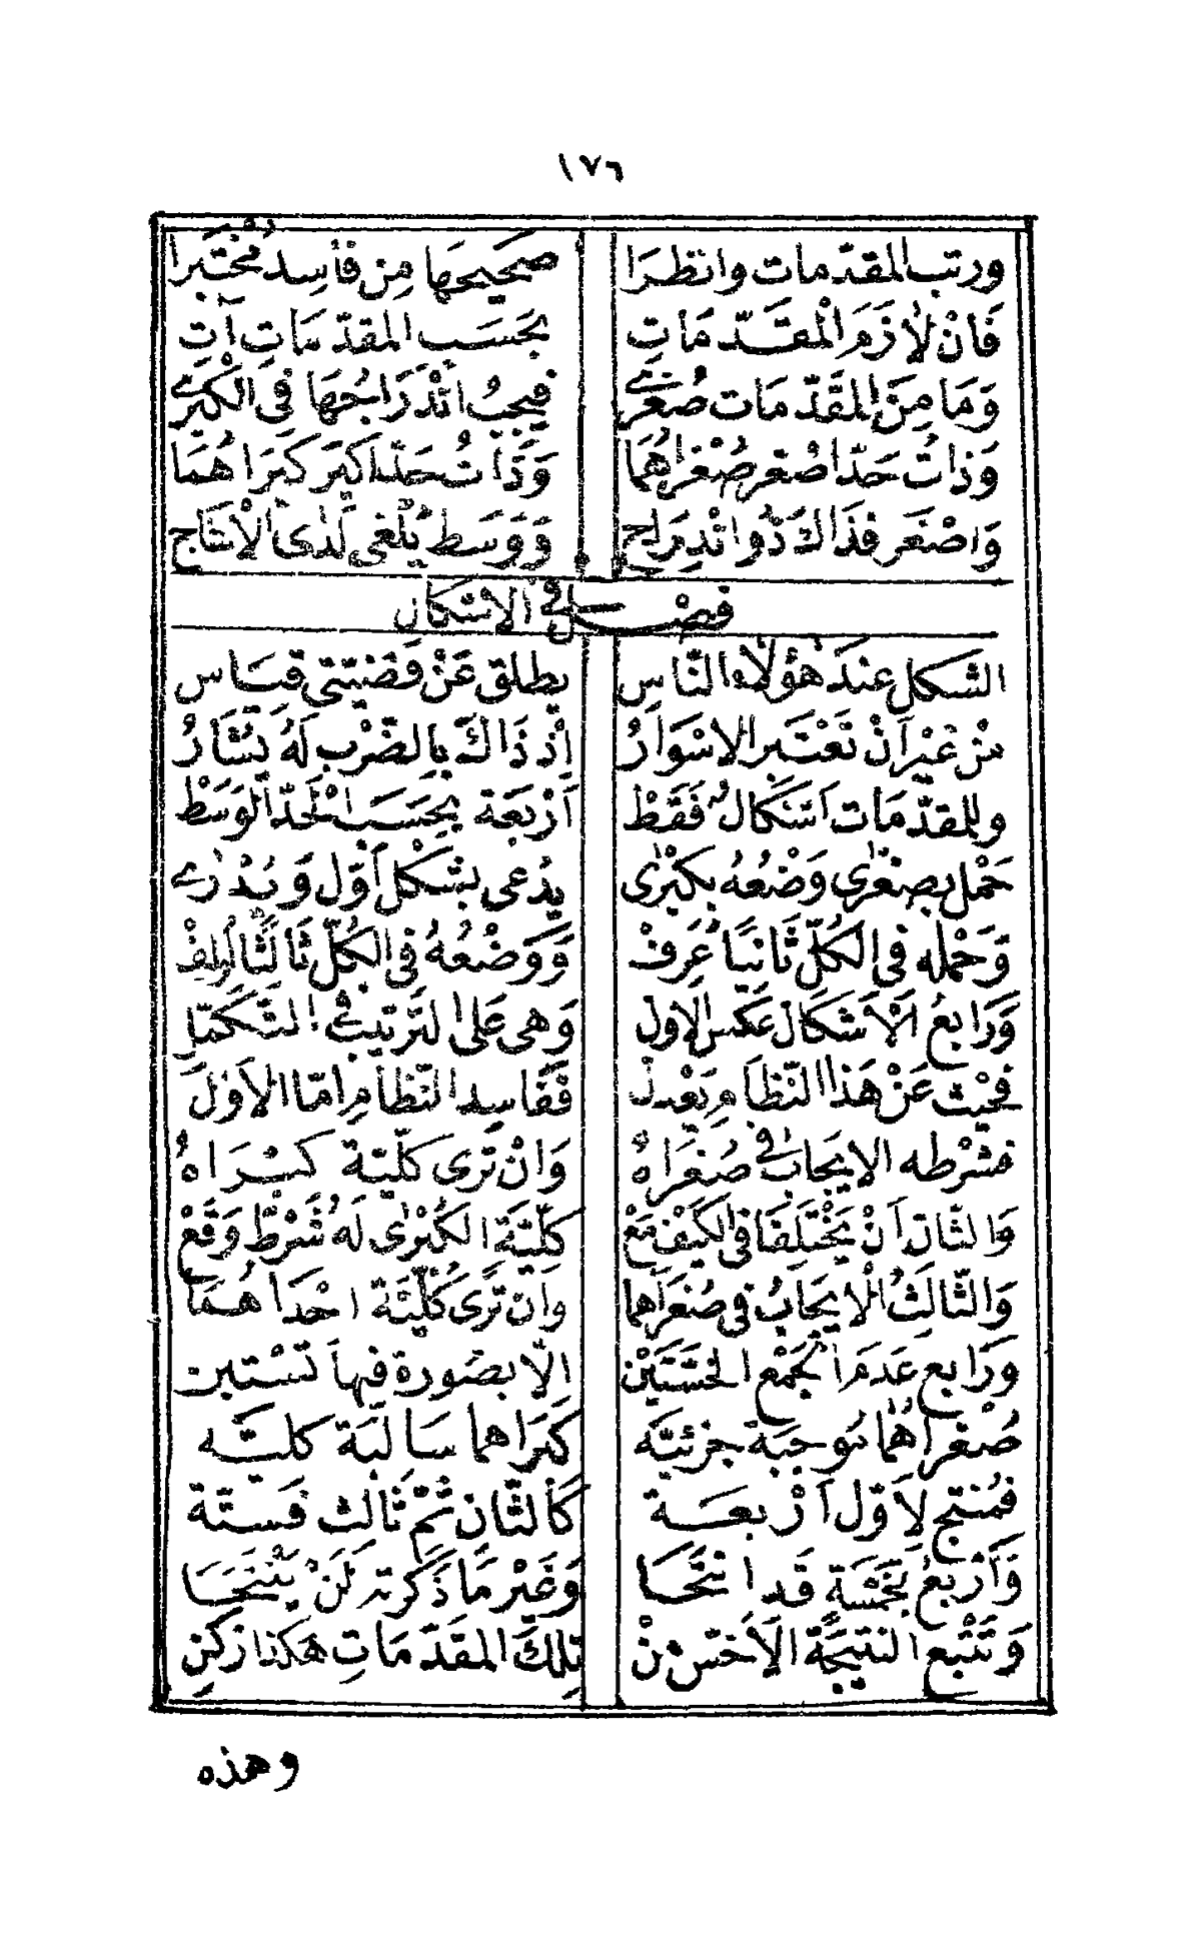 ١٧٦
ورتب المقدّمات وانظرَا صَحَيحهَا مِن فَاسِد مُخْتَبَرا
فَانْ لَازَمَ الْمقَدّمَاتِ بحَسَب المقدّمَاتِ آتٍ
وَمَا مِنَ المقَدّمَات صُغْرَى فيَجِبُ انْدرَاجُهَا فِى الكبْرَى
وَذاتُ حَدّ اصْغر صُغْراهُمَا وَذَاتُ حَدّ اكبَر كبَراهُمَا
وَاصْغَر فذَاكَ ذُو انْدِرَاجِ وَوَسَط يُلْغى لَدَى الْانتَاج
فصْل فى الاشكال
الشكل عندَ هَؤلَاء النّاسِ يطلق عَنْ قضيّتى قيَاسِ
مْن غيْر اَنْ تُعْتَبر الاسْوَارُ اِذْ ذَاكَ بِالضّرْب لَهُ يُشَارُ
وللمقدّمَات اَشكَالٌ فَقَطْ اَرْبَعَة بحَسَب الْحَدّ الوَسَطْ
حَمْل بصغْرَى وَضْعُهُ بكبْرٰى يدْعى بشَكْل اَوّل وَيُدْرٰى
وَحَمْله فى الكُلّ ثَانيًا عُرِفْ وَوَضْعُهُ فِى الكُلّ ثَالثًا اُلِفْ
وَرَابعُ اَلْاَشكَال عَكس الاول وَهى عَلى التَرتيب فى التَكمّل
فحيْث عَنْ هَذا النّظَامِ يَعْدل فَفَاسِد النّظَامِ امّا الاَوَلَ
فشرْطه الايجَاب فى صُغرَاهُ وَانْ تُرَى كلّيَة كبْرَاهُ
وَالثّانِ اَنْ يَخْتَلِفَا فى الكَيْفِ مَعْ كلّيَة الكُبْرٰى لَهُ شَرْط وَقَعْ
وَالثّالثُ الْايجَابُ فى صُغرَاهما وان تُرَى كُلّيَّة احْدَاهُمَا
ورَابع عَدَمَ الْجَمْع الخسَّتَيْن الّا بصُورة فَفِيها تَسْتبين
صُغراهُمَا مُوجَبَة جزئيّة كَبَراهما سَالبَة كليّه
فمُنتج لِاَوّل اَرْبعَة كَالثّانِ ثُمّ ثَالث فستّة
وَاَرْبعُ بخمْسَة قَد انتَجَا وَغَيْر مَا ذكَرته لَنْ يُنْتجَا
وَتَتْبع النتيجَة الاَخَسّ مِنْ تِلكَ المقَدّمَاتِ هَكذَا زُكِنْ
وهذه